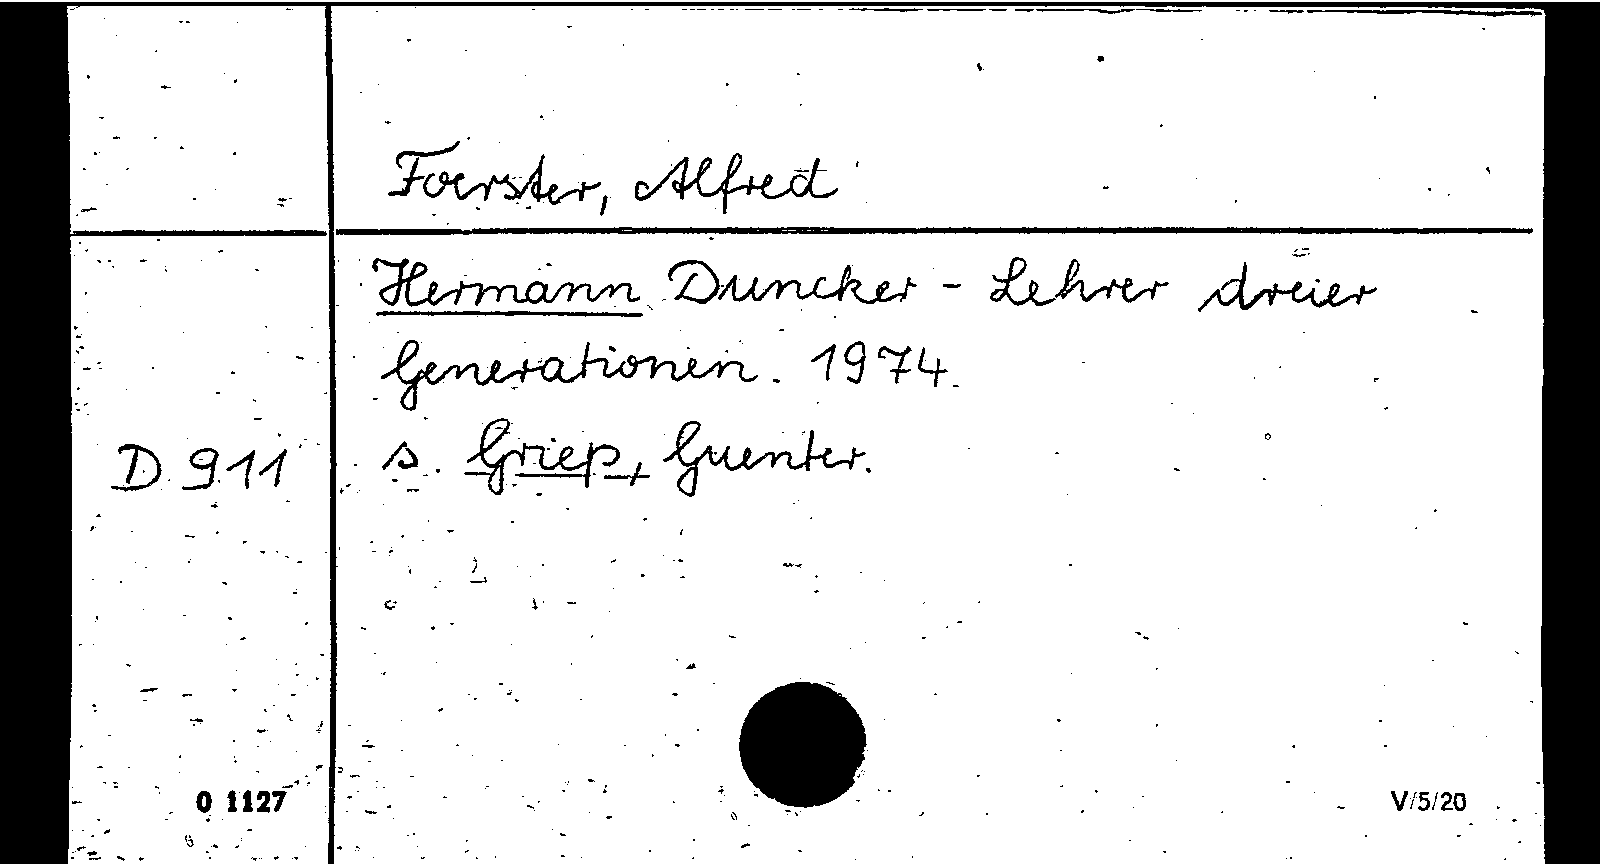 Foerster, Alfred
Hermann Duncker - Lehrer dreier
Generationen. 1974.
D 911 s. Griep, Guenter.
O 1127 V/5/20